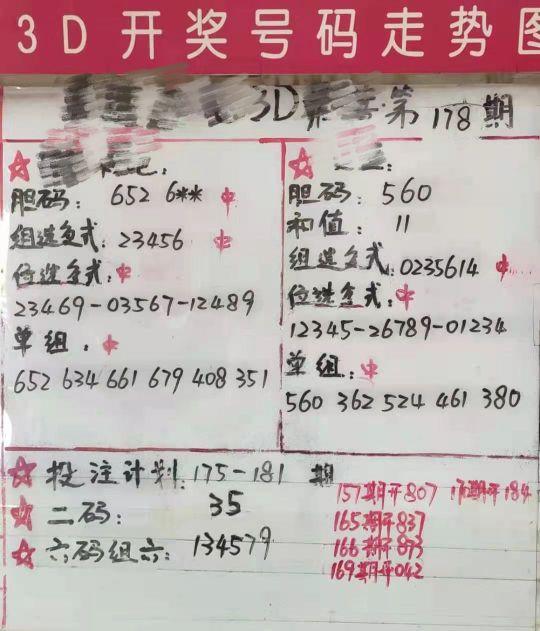 3D开奖号码走势图
3D 第178期
胆码: 652 6** 中
组选复式: 23456 中
位选复式: 中
23469-03567-12489
单组: 中
652 634 661 679 408 351
胆码: 560
和值: 11
组选复式: 0235614 中
位选复式: 中
12345-26789-01234
单组: 中
560 362 524 461 380
投注计划: 175-181 期
二码: 35
六码组六: 134579
157期开807
165期开837
166期开873
169期开042